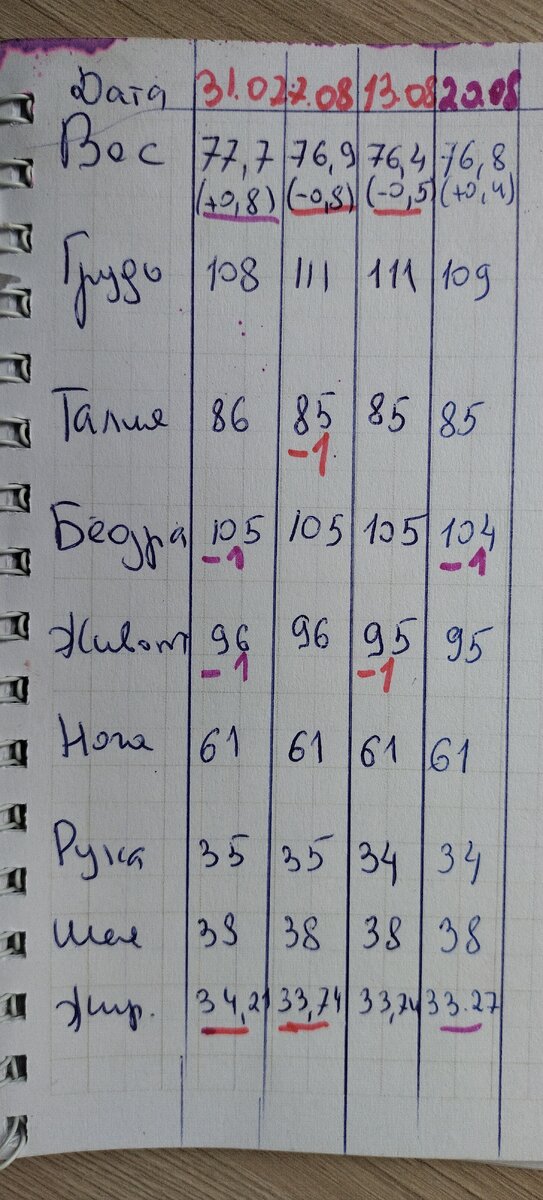 Дата 31.07 7.08 13.08 20.08
Вес 77,7 76,9 76,4 76,8
(+0,8) (-0,8) (-0,5) (+0,4)
Грудь 108 111 111 109
Талия 86 85 85 85
-1
Бёдра 105 105 105 104
-1 -1
Живот 96 96 95 95
-1 -1
Нога 61 61 61 61
Рука 35 35 34 34
Шея 38 38 38
Жир. 34,21 33,74 33,74 33.27